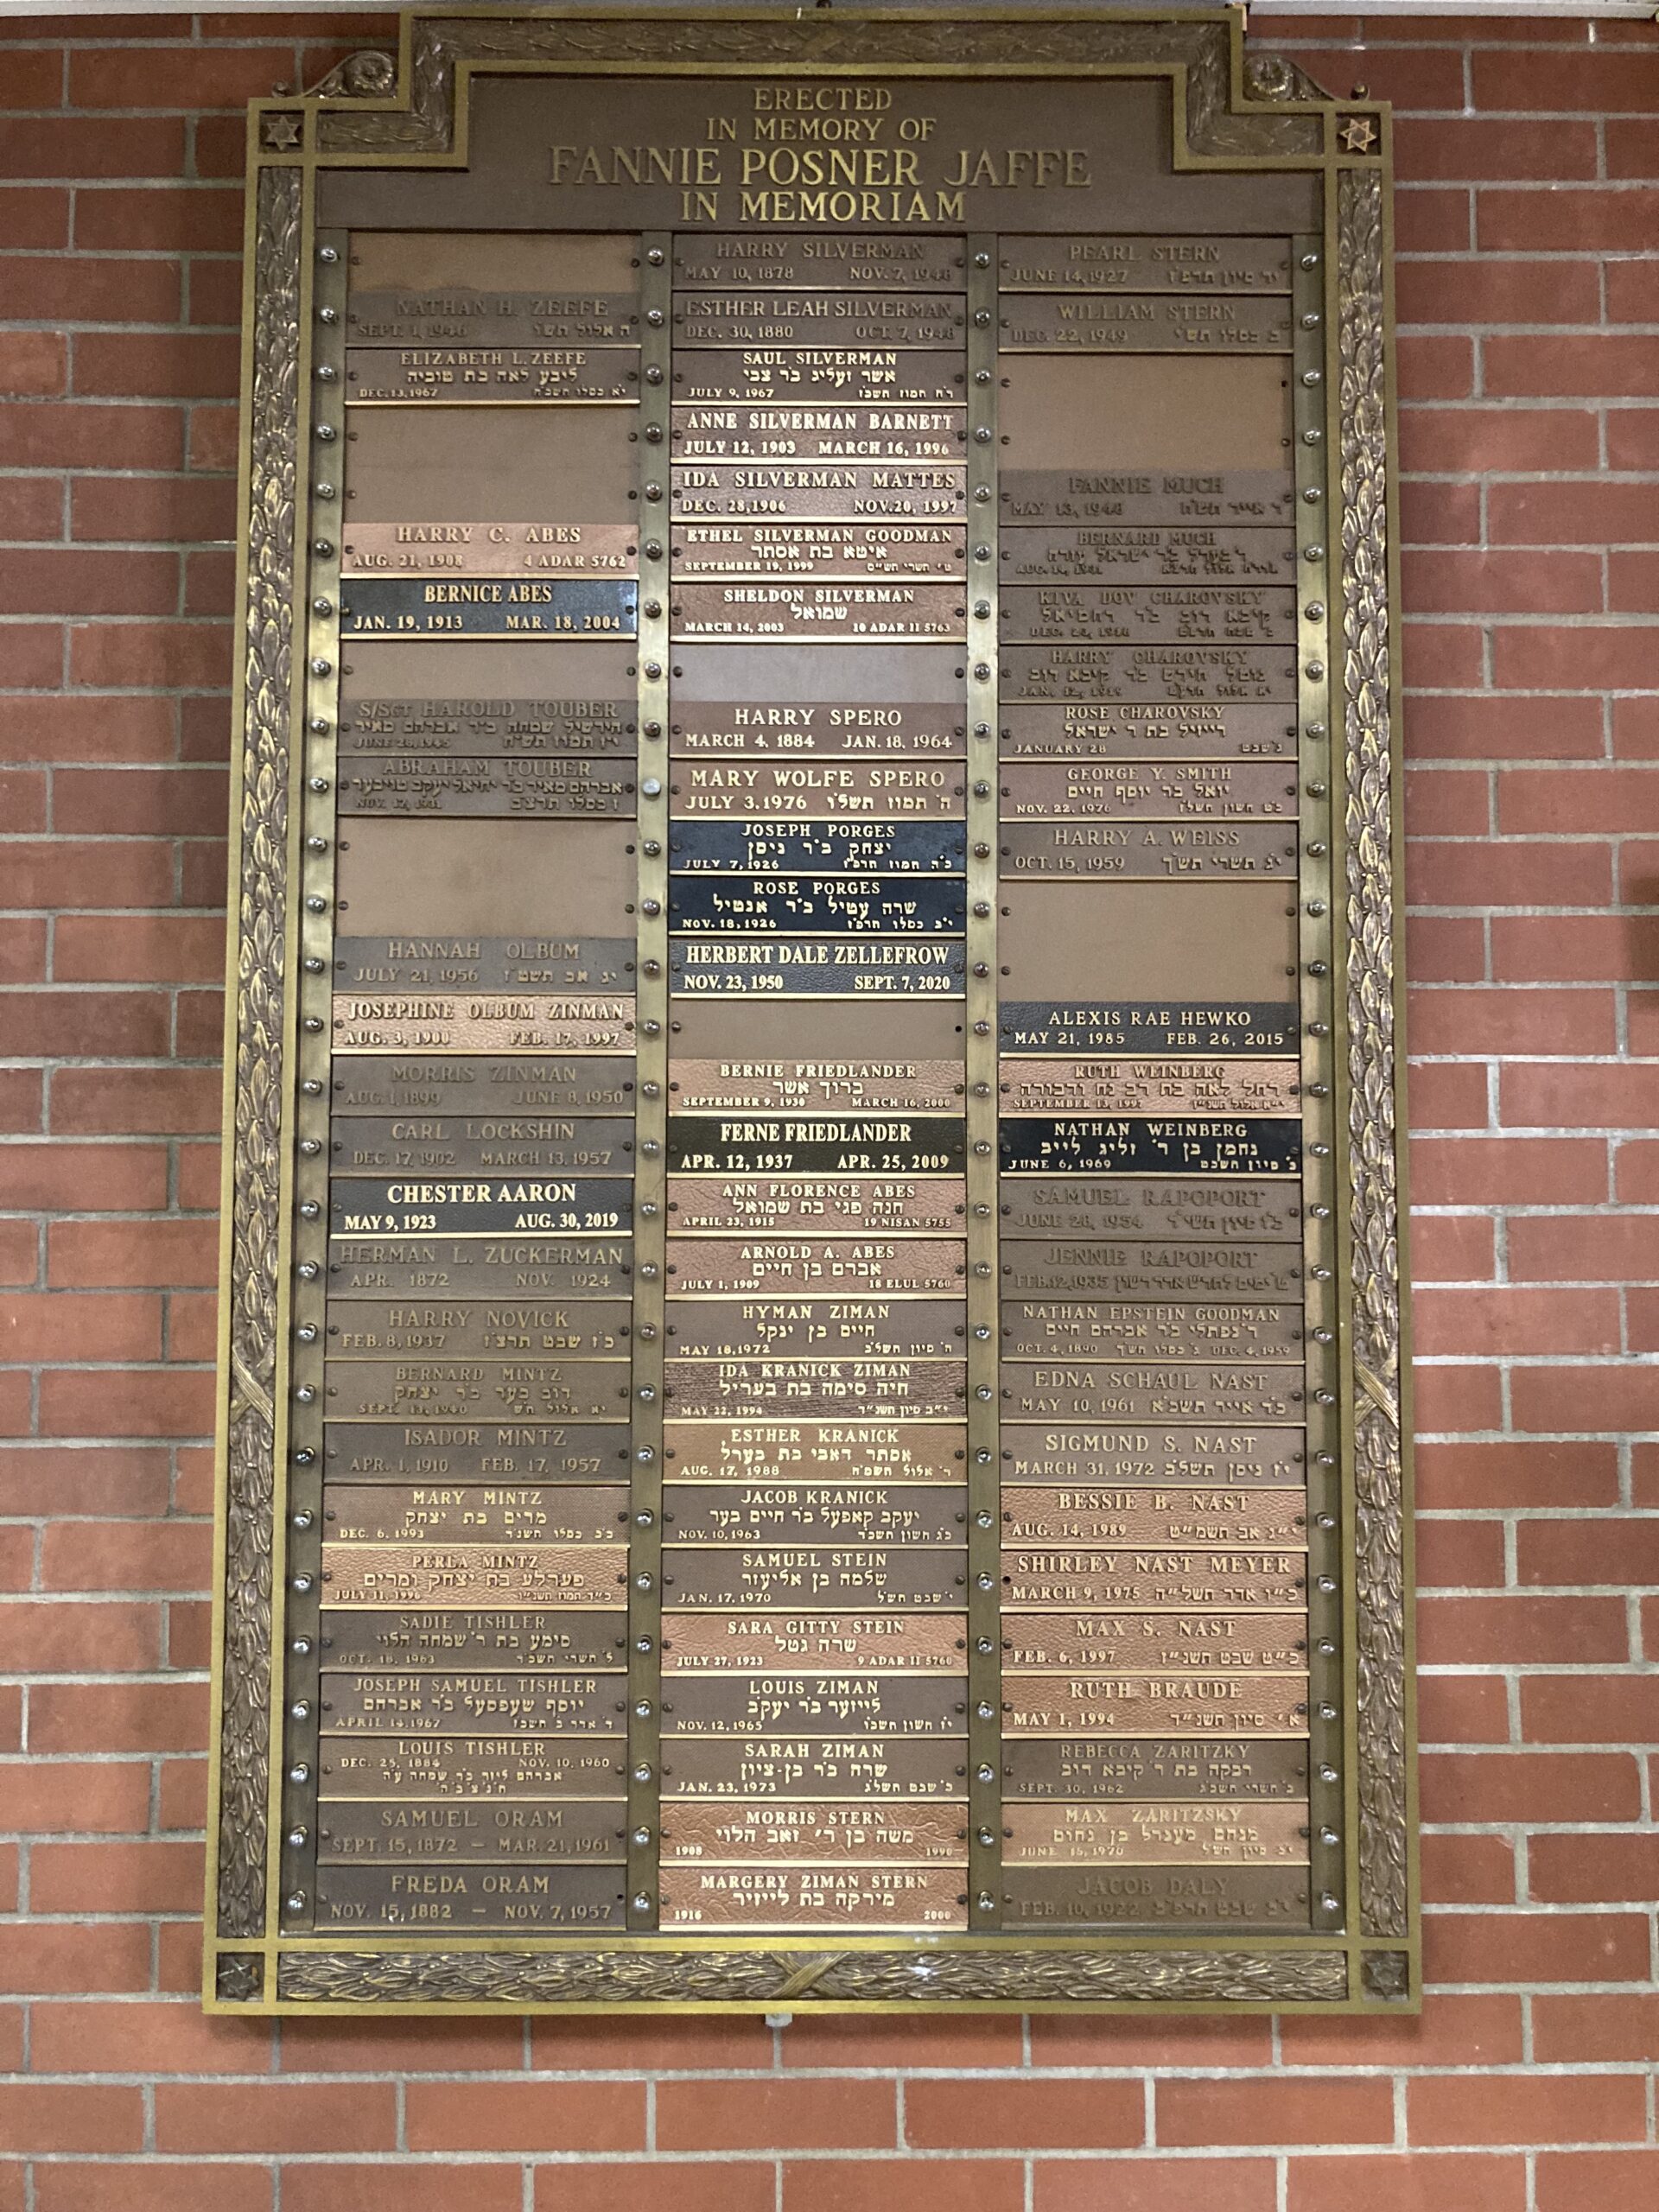 ERECTED
IN MEMORY OF
FANNIE POSNER JAFFE
IN MEMORIAM
NATHAN H. ZEEFE
SEPT. 1, 1946 ה אלול תש"ו
ELIZABETH L. ZEEFE
ליבע לאה בת טוביה
DEC. 13, 1967 יא כסלו תשכ"ח
HARRY C. ABES
AUG. 21, 1908 4 ADAR 5762
BERNICE ABES
JAN. 19, 1913 MAR. 18, 2004
S/SGT HAROLD TOUBER
הירשיל שמחה ב"ר אברהם מאיר
JUNE 28, 1945
ABRAHAM TOUBER
אברהם מאיר ב"ר יחיאל יעקב טויבער
NOV. 12, 1931 כסלו תרצ"ב
HANNAH OLBUM
JULY 21, 1956 יג אב תשט"ז
JOSEPHINE OLBUM ZINMAN
AUG. 3, 1900 FEB. 17, 1997
MORRIS ZINMAN
AUG. 1, 1899 JUNE 8, 1950
CARL LOCKSHIN
DEC. 17, 1902 MARCH 13, 1957
CHESTER AARON
MAY 9, 1923 AUG. 30, 2019
HERMAN L. ZUCKERMAN
APR. 1872 NOV. 1924
HARRY NOVICK
FEB. 8, 1937 כ"ז שבט תרצ"ז
BERNARD MINTZ
דוב בער ב"ר יצחק
SEPT. 13, 1940 אלול ת"ש
ISADOR MINTZ
APR. 1, 1910 FEB. 17, 1957
MARY MINTZ
מרים בת יצחק
DEC. 6, 1993 כ"ב כסלו תשנ"ד
PERLA MINTZ
פערלע בת יצחק ומרים
JULY 11, 1996 כ"ד תמוז תשנ"ו
SADIE TISHLER
סימע בת ר' שמחה הלוי
OCT. 18, 1963 ל' תשרי תשכ"ד
JOSEPH SAMUEL TISHLER
יוסף שעפסעל ב"ר אברהם
APRIL 14, 1967 ד' אדר ב תשכ"ז
LOUIS TISHLER
DEC. 25, 1884 NOV. 10, 1960
אברהם ליזר ב"ר שמחה ע"ה
ת'נ'צ'ב'ה'
SAMUEL ORAM
SEPT. 15, 1872 — MAR. 21, 1961
FREDA ORAM
NOV. 15, 1882 — NOV. 7, 1957
HARRY SILVERMAN
MAY 10, 1878 NOV. 7, 1948
ESTHER LEAH SILVERMAN
DEC. 30, 1880 OCT. 7, 1948
SAUL SILVERMAN
אשר זעליג ב"ר צבי
JULY 9, 1967 תמוז תשכ"ז
ANNE SILVERMAN BARNETT
JULY 12, 1903 MARCH 16, 1996
IDA SILVERMAN MATTES
DEC. 28, 1906 NOV. 20, 1997
ETHEL SILVERMAN GOODMAN
איטא בת אסתר
SEPTEMBER 19, 1999 ט' תשרי תש"ס
SHELDON SILVERMAN
שמואל
MARCH 14, 2003 10 ADAR II 5763
HARRY SPERO
MARCH 4, 1884 JAN. 18, 1964
MARY WOLFE SPERO
JULY 3, 1976 ה' תמוז תשל"ו
JOSEPH PORGES
יצחק ב"ר ניסן
JULY 7, 1926 כ"ה תמוז תרפ"ו
ROSE PORGES
שרה עטיל ב"ר אנטיל
NOV. 18, 1926 י"ב כסלו תרפ"ז
HERBERT DALE ZELLEFROW
NOV. 23, 1950 SEPT. 7, 2020
BERNIE FRIEDLANDER
ברוך אשר
SEPTEMBER 9, 1930 MARCH 16, 2000
FERNE FRIEDLANDER
APR. 12, 1937 APR. 25, 2009
ANN FLORENCE ABES
חנה פגי בת שמואל
APRIL 23, 1915 19 NISAN 5755
ARNOLD A. ABES
אברם בן חיים
JULY 1, 1909 18 ELUL 5760
HYMAN ZIMAN
חיים בן ינקל
MAY 18, 1972 ה' סיון תשל"ב
IDA KRANICK ZIMAN
חיה סימה בת בעריל
MAY 22, 1994 י"ב סיון תשנ"ד
ESTHER KRANICK
אסתר דאבי בת בערל
AUG. 17, 1988 ד' אלול תשמ"ח
JACOB KRANICK
יעקב קאפעל ב"ר חיים בער
NOV. 10, 1963 כ"ג חשון תשכ"ד
SAMUEL STEIN
שלמה בן אליעזר
JAN. 17, 1970 י' שבט תש"ל
SARA GITTY STEIN
שרה גטל
JULY 27, 1923 9 ADAR II 5760
LOUIS ZIMAN
לייזער ב"ר יעקב
NOV. 12, 1965 י"ז חשון תשכ"ו
SARAH ZIMAN
שרה ב"ר בן-ציון
JAN. 23, 1973 כ' שבט תשל"ג
MORRIS STERN
משה בן ר' זאב הלוי
1908 1990
MARGERY ZIMAN STERN
מירקה בת לייזיר
1916 2000
PEARL STERN
JUNE 14, 1927 יד סיון תרפ"ז
WILLIAM STERN
DEC. 22, 1949 ב כסלו תש"י
FANNIE MUCH
MAY 13, 1948 ד אייר תש"ח
BERNARD MUCH
ר' בערל ב"ר ישראל עזרה
KIVA DOV CHAROVSKY
קיבא דוב ב"ר ירחמיאל
HARRY CHAROVSKY
קיבא דוב
ROSE CHAROVSKY
רייזיל בת ר ישראל
JANUARY 28 כ'שבט
GEORGE Y. SMITH
יואל ב"ר יוסף חיים
NOV. 22, 1976 כ"ט חשון תשל"ז
HARRY A. WEISS
OCT. 15, 1959 י"ג תשרי תש"ך
ALEXIS RAE HEWKO
MAY 21, 1985 FEB. 26, 2015
RUTH WEINBERG
רחל לאה בת רב נח ודבורה
SEPTEMBER 13, 1997 י"א אלול תשנ"ז
NATHAN WEINBERG
נחמן בן ר' זליג לייב
JUNE 6, 1969 כ' סיון תשכ"ט
SAMUEL RAPOPORT
JUNE 28, 1954 כ"ז סיון תשי"ד
JENNIE RAPOPORT
FEB. 12, 1935 ט' ימים לחודש אדר ראשון
NATHAN EPSTEIN GOODMAN
ר' נפתלי ב"ר אברהם חיים
OCT. 4, 1890 ג' כסלו תש"ך DEC. 4, 1959
EDNA SCHAUL NAST
MAY 10, 1961 כ"ד אייר תשכ"א
SIGMUND S. NAST
MARCH 31, 1972 י"ז ניסן תשל"ב
BESSIE B. NAST
AUG. 14, 1989 י"ג אב תשמ"ט
SHIRLEY NAST MEYER
MARCH 9, 1975 כ"ו אדר תשל"ה
MAX S. NAST
FEB. 6, 1997 כ"ט שבט תשנ"ז
RUTH BRAUDE
MAY 1, 1994 א' סיון תשנ"ד
REBECCA ZARITZKY
רבקה בת ר קיבא דוב
SEPT. 30, 1962 ב' תשרי תשכ"ג
MAX ZARITZSKY
מנחם מענדל בן נחום
JUNE 16, 1970 יב סיון תש"ל
JACOB DALY
FEB. 10, 1922 י"ב שבט תרפ"ב